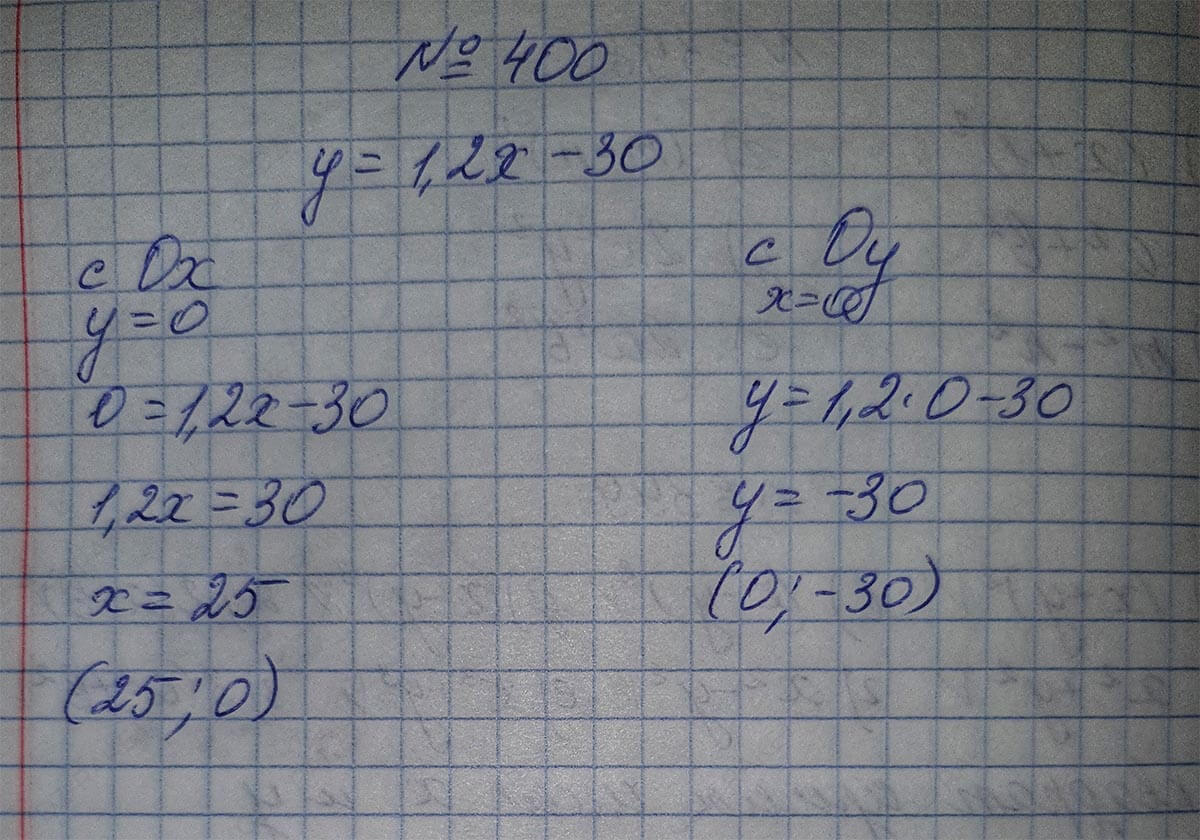 № 400
y = 1,2x - 30
с Ox
y = 0
0 = 1,2x - 30
1,2x = 30
x = 25
(25; 0)
с Oy
x = 0
y = 1,2 · 0 - 30
y = -30
(0; -30)